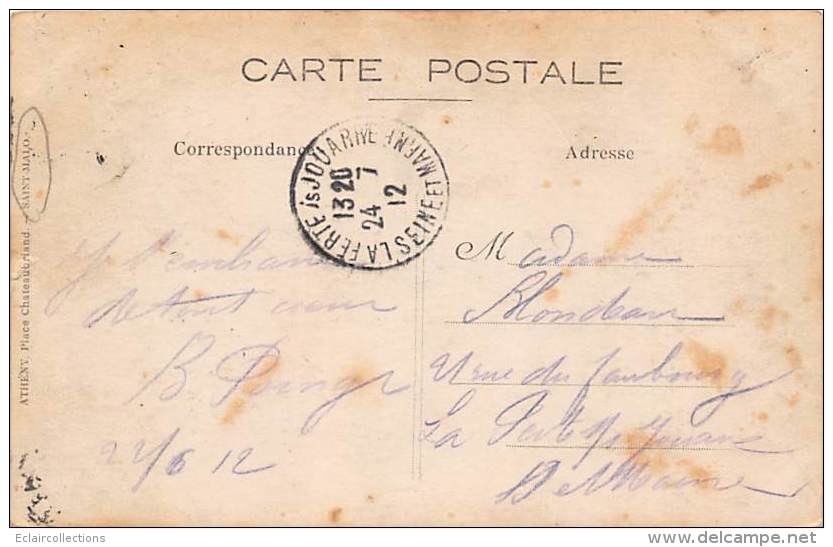 CARTE POSTALE
Correspondance
Adresse
LA FERTE ss JOUARRE SEINE ET MARNE
13 20
24 7
12
ATHÉNY, Place Chateaubriand. - SAINT-MALO.
de tout cœur
B
22/6 12
Madame
Blondeau
rue du faubourg
La Ferté
Eclaircollections
www.delcampe.net